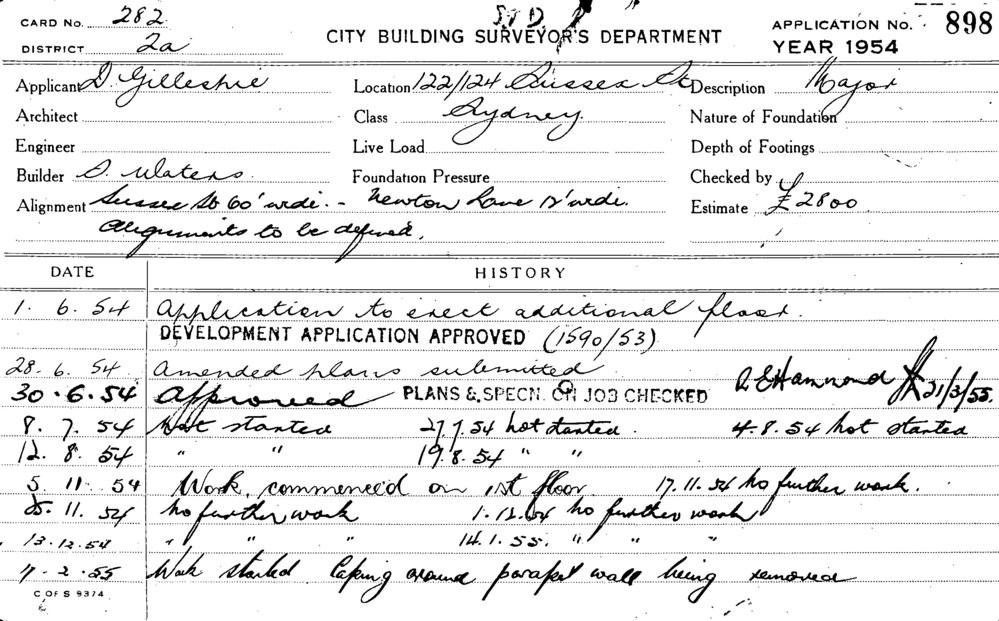 CARD NO. 282
DISTRICT 2a
CITY BUILDING SURVEYOR'S DEPARTMENT
APPLICATION NO. 898
YEAR 1954
Applicant D. Gilleshie Location 122/124 Sussex St Description Major
Architect Class Sydney Nature of Foundation
Engineer Live Load Depth of Footings
Builder D. Waters Foundation Pressure Checked by
Alignment Sussex St 60' wide. - Newton Lane 12' wide. Estimate £2800
Alignments to be defined.
DATE HISTORY
1. 6. 54 Application to erect additional floor.
DEVELOPMENT APPLICATION APPROVED (1590/53)
28. 6. 54 Amended plans submitted
30. 6. 54 Approved PLANS & SPECN. ON JOB CHECKED Hammond 21/3/55.
8. 7. 54 Not started 27.7.54 not started. 4.8.54 not started
12. 8. 54 " " 19.8.54 " "
5. 11. 54 Work commenced on 1st floor. 17.11.54 No further work.
25. 11. 54 No further work 1.12.54 No further work
13.12.54 " " " 14.1.55. " " "
2.55 Work started Coping around parapet wall being removed
C OF S 9374